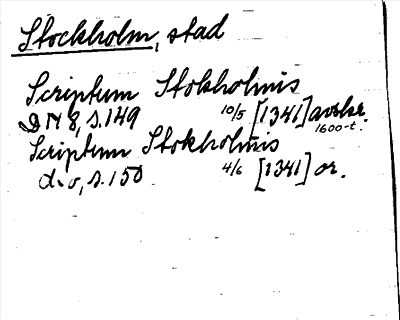 Stockholm, stad
Scriptum Stokholmis
DN 8, s. 149 10/5 [1341] avskr. 1600-t.
Scriptum Stokholmis
d:o, s. 150 4/6 [1341] or.